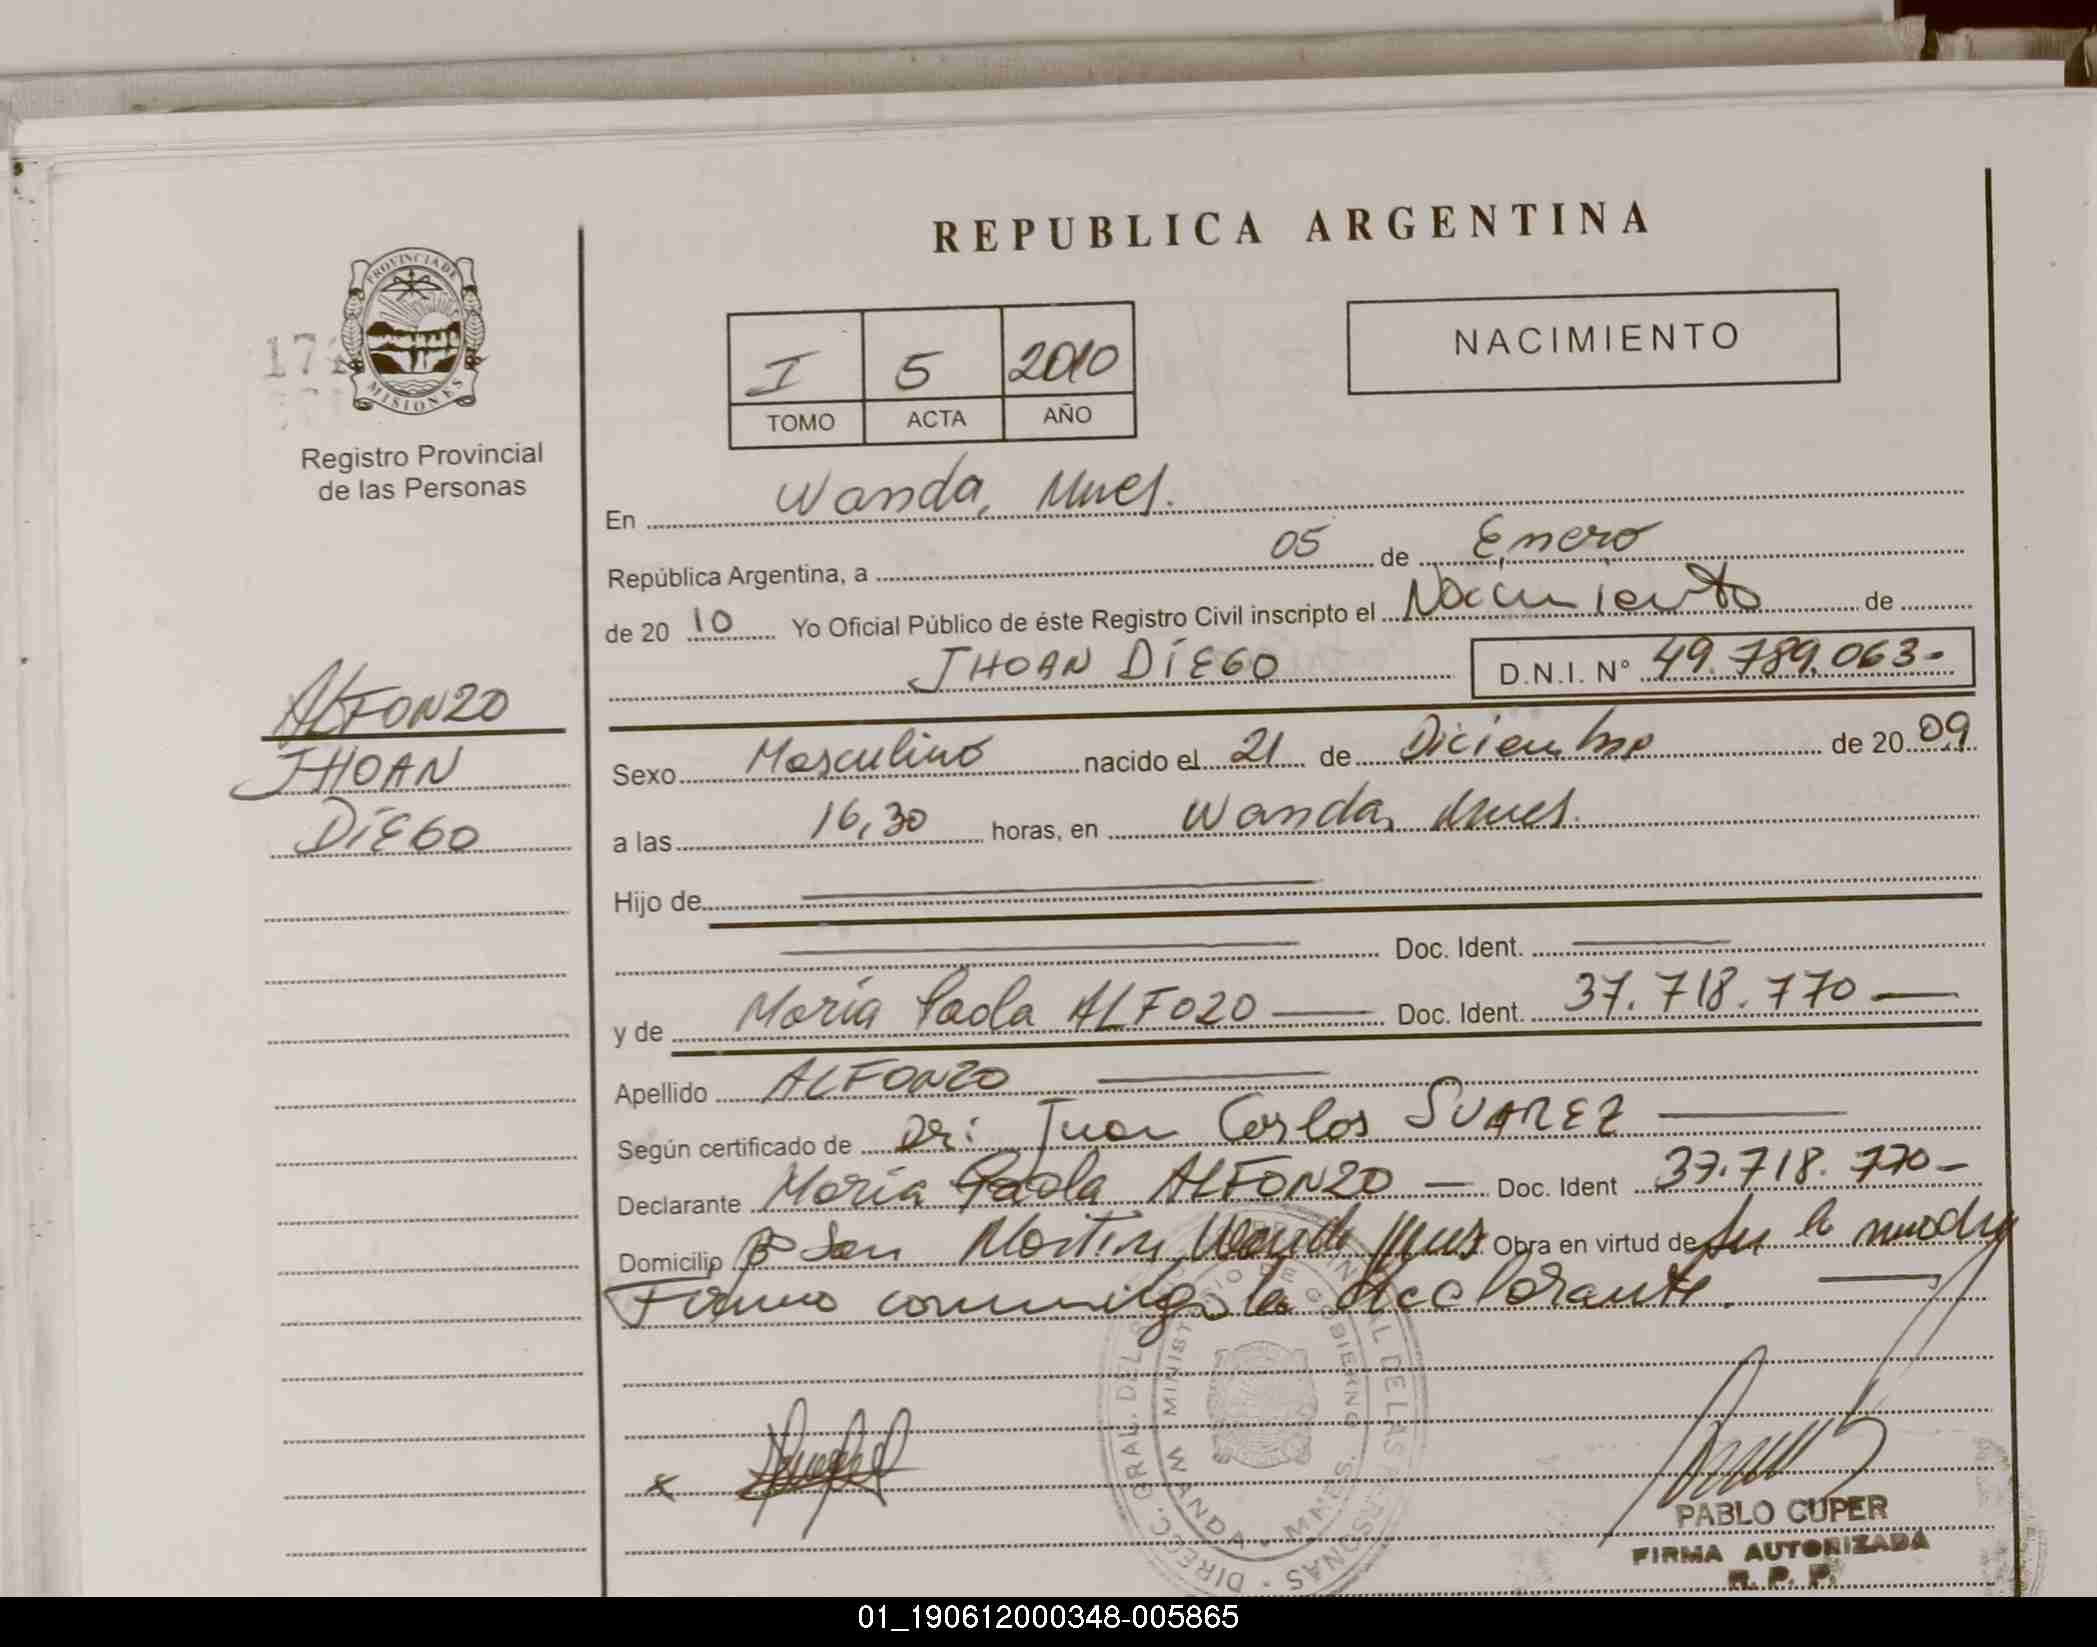 REPUBLICA ARGENTINA
PROVINCIA DE MISIONES
Registro Provincial
de las Personas
I 5 2010
TOMO ACTA AÑO
NACIMIENTO
En Wanda, Mnes.
República Argentina, a 05 de Enero
de 20 10 Yo Oficial Público de éste Registro Civil inscripto el Nacimiento de
JHOAN DIEGO D.N.I. Nº 49.789.063-
ALFONZO
JHOAN
DIEGO
Sexo Masculino nacido el 21 de Diciembre de 20 09
a las 16,30 horas, en Wanda, Mnes.
Hijo de
Doc. Ident.
y de María Paola ALFOZO Doc. Ident. 37.718.770
Apellido ALFONZO
Según certificado de Dr: Juan Carlos SUAREZ
Declarante María Paola ALFONZO Doc. Ident 37.718.770-
Domicilio Bº San Martin Wanda Mnes Obra en virtud de ser la madre
Firma conmigo la declarante.
DIRECC. GRAL. DEL REG. PROVINCIAL DE LAS PERSONAS
MINISTERIO DE GOBIERNO
WANDA - MNES.
PABLO CUPER
FIRMA AUTORIZADA
R. P. P.
01_190612000348-005865